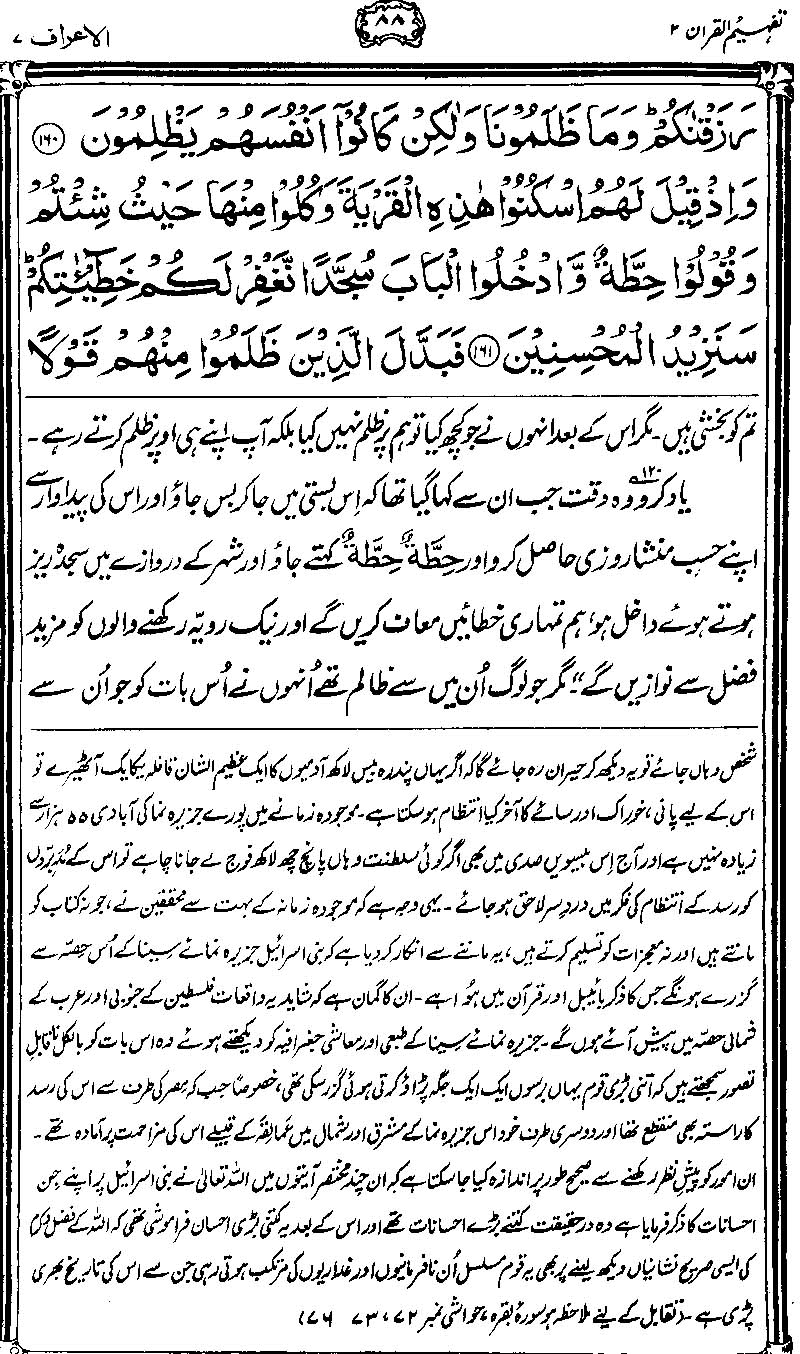 تفہیم القرآن ۲
۸۸
الاعراف ۷
رَزَقْنٰكُمْ ؕ وَمَا ظَلَمُوْنَا وَلٰكِنْ كَانُوْۤا اَنْفُسَهُمْ يَظْلِمُوْنَ ۝۱۶۰
وَاِذْ قِيْلَ لَهُمُ اسْكُنُوْا هٰذِهِ الْقَرْيَةَ وَكُلُوْا مِنْهَا حَيْثُ شِئْتُمْ
وَقُوْلُوْا حِطَّةٌ وَّادْخُلُوا الْبَابَ سُجَّدًا نَّغْفِرْ لَكُمْ خَطِيْٓـٰٔتِكُمْ ؕ
سَنَزِيْدُ الْمُحْسِنِيْنَ ۝۱۶۱ فَبَدَّلَ الَّذِيْنَ ظَلَمُوْا مِنْهُمْ قَوْلًا
تم کو بخشی ہیں۔ مگر اس کے بعد انہوں نے جو کچھ کیا تو ہم پر ظلم نہیں کیا بلکہ آپ اپنے ہی اوپر ظلم کرتے رہے۔
یاد کرو ۱۲۰ وہ وقت جب ان سے کہا گیا تھا کہ اِس بستی میں جا کر بس جاؤ اور اس کی پیداوار سے
اپنے حسبِ منشا روزی حاصل کرو اور حِطَّةٌ حِطَّةٌ کہتے جاؤ اور شہر کے دروازے میں سجدہ ریز
ہوتے ہوئے داخل ہو، ہم تمہاری خطائیں معاف کریں گے اور نیک رویّہ رکھنے والوں کو مزید
فضل سے نوازیں گے“ مگر جو لوگ اُن میں سے ظالم تھے اُنہوں نے اُس بات کو جو اُن سے
شخص وہاں جائے تو یہ دیکھ کر حیران رہ جائے گا کہ اگر یہاں پندرہ بیس لاکھ آدمیوں کا ایک عظیم الشان قافلہ یکایک آ ٹھیرے تو
اس کے لیے پانی، خوراک اور سائے کا آخر کیا انتظام ہو سکتا ہے۔ موجودہ زمانے میں پورے جزیرہ نما کی آبادی ۵۵ ہزار سے
زیادہ نہیں ہے اور آج اِس بیسویں صدی میں بھی اگر کوئی سلطنت وہاں پانچ چھ لاکھ فوج لے جانا چاہے تو اس کے مُدبّروں
کو رسد کے انتظام کی فکر میں دردِ سر لاحق ہو جائے۔ یہی وجہ ہے کہ موجودہ زمانہ کے بہت سے محققین نے، جو نہ کتاب کو
مانتے ہیں اور نہ معجزات کو تسلیم کرتے ہیں، یہ ماننے سے انکار کر دیا ہے کہ بنی اسرائیل جزیرہ نمائے سینا کے اُس حصّہ سے
گزرے ہونگے جس کا ذکر بائیبل اور قرآن میں ہُوا ہے۔ ان کا گمان ہے کہ شاید یہ واقعات فلسطین کے جنوبی اور عرب کے
شمالی حصّہ میں پیش آئے ہوں گے۔ جزیرہ نمائے سینا کے طبعی اور معاشی جغرافیہ کو دیکھتے ہوئے وہ اس بات کو بالکل ناقابلِ
تصور سمجھتے ہیں کہ اتنی بڑی قوم یہاں برسوں ایک ایک جگہ پڑاؤ کرتی ہوئی گزر سکی تھی، خصوصًا جب کہ مصر کی طرف سے اس کی رسد
کا راستہ بھی منقطع تھا اور دوسری طرف خود اس جزیرہ نما کے مشرق اور شمال میں عمالِقہ کے قبیلے اس کی مزاحمت پر آمادہ تھے۔
ان امور کو پیشِ نظر رکھنے سے صحیح طور پر اندازہ کیا جا سکتا ہے کہ ان چند مختصر آیتوں میں اللہ تعالیٰ نے بنی اسرائیل پر اپنے جن
احسانات کا ذکر فرمایا ہے وہ درحقیقت کتنے بڑے احسانات تھے اور اس کے بعد یہ کتنی بڑی احسان فراموشی تھی کہ اللہ کے فضل و کرم
کی ایسی صریح نشانیاں دیکھ لینے پر بھی یہ قوم مسلسل اُن نافرمانیوں اور غداریوں کی مرتکب ہوتی رہی جن سے اس کی تاریخ بھری
پڑی ہے۔ (تقابل کے لیے ملاحظہ ہو سورۂ بقرہ، حواشی نمبر ۷۲، ۷۳، ۷۶)